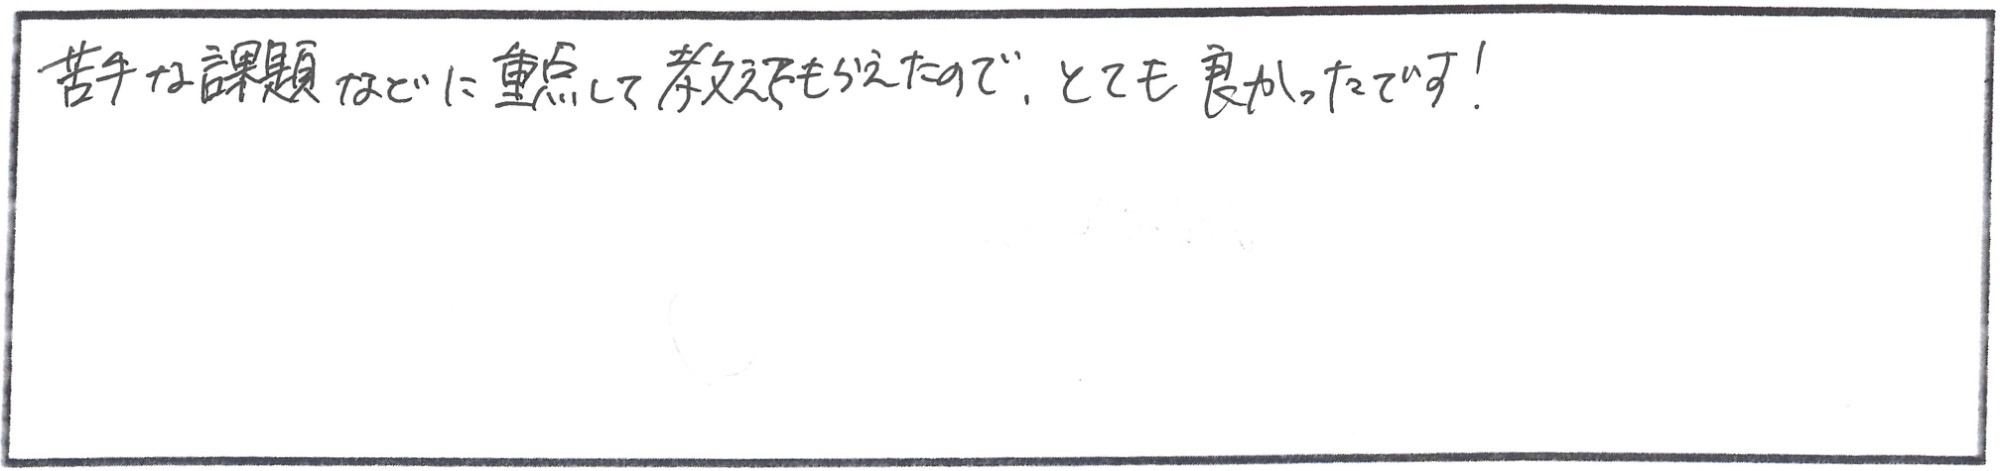 苦手な課題などに重点して教えてもらえたので、とても良かったです!